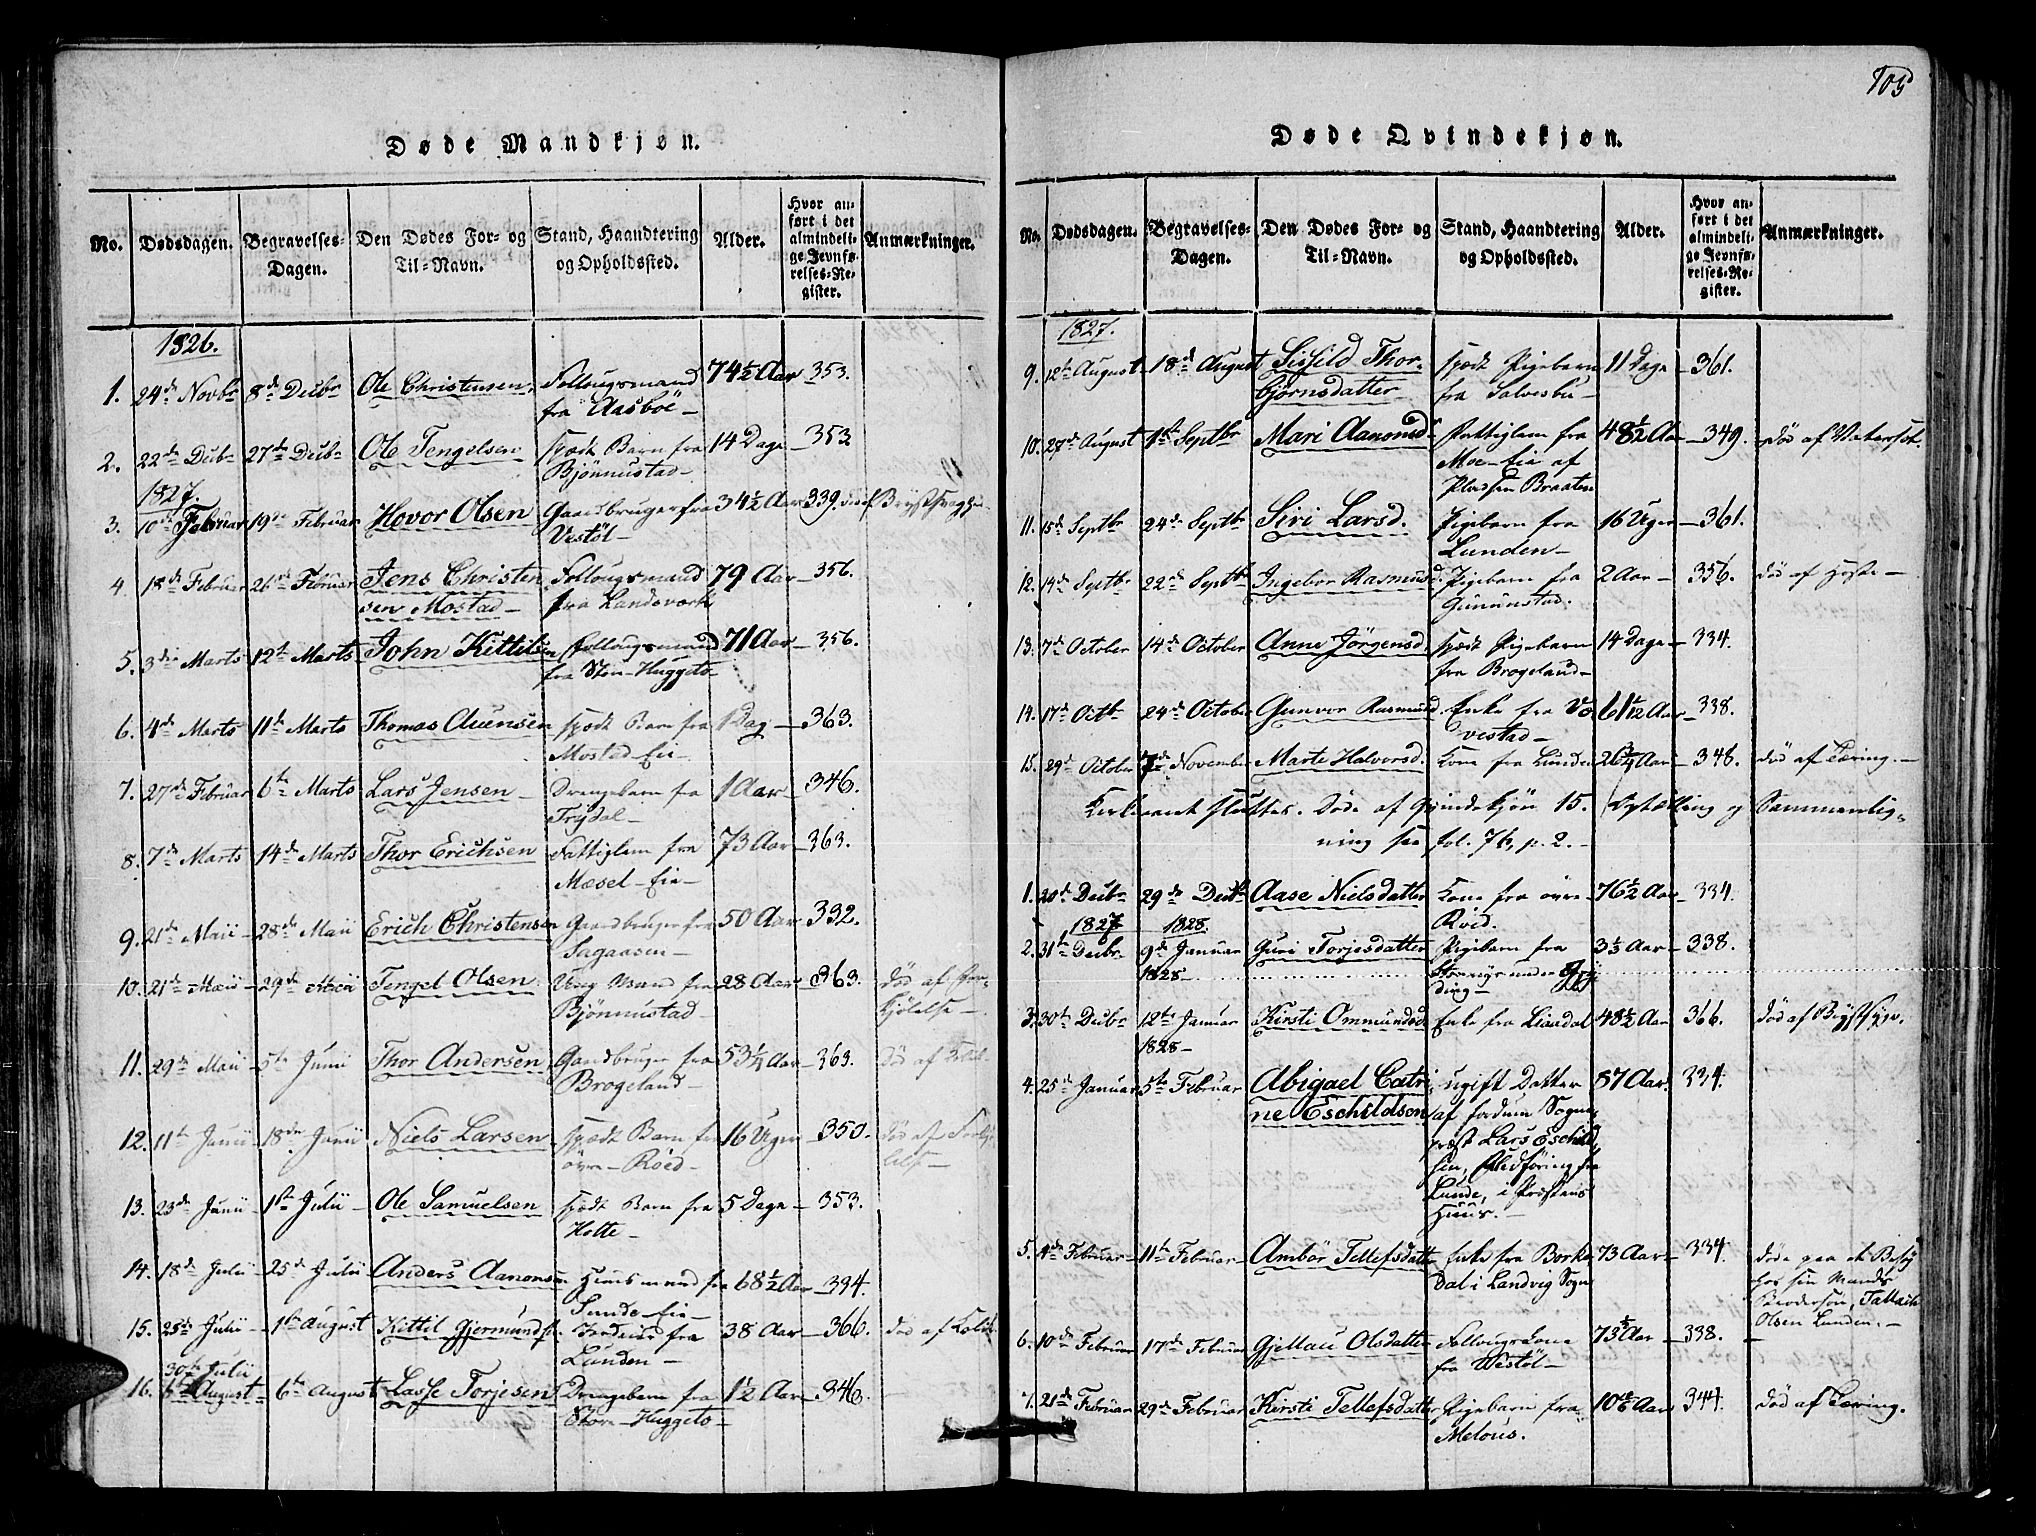 105
Døde Mandkjøn.
No. Dødsdagen. Begravelses-Dagen. Den Dødes For- og Til-Navn. Stand, Haandtering og Opholdssted. Alder. Hvor anført i det almindelige Jevnførelses-Register. Anmærkninger.
1826.
1. 24de Novbr 8de Decbr Ole Christensen Follougsmand 74½ Aar 353.
fra Aasböe
2. 22de Decbr 27de Decbr Ole Tengelsen spædt Barn fra 14 Dage 353
Bjönnustad
1827.
3. 10de Februar 19de Februar Hovor Olsen Gaardbruger fra 34½ Aar 339.
Vestöl
4. 18de Februar 26de Februar Jens Christen Follougsmand 79 Aar 356.
sen Mostad fra Landsværk
5. 3die Marts 12te Marts John Kittilsen Follougsmand 71 Aar 356.
fra Sten-Huggeto
6. 4de Marts 11te Marts Thomas Auensen spædt Barn fra 1 Dag 363.
Mostad Eie
7. 27de Februar 6te Marts Lars Jensen Drengebarn fra 1 Aar 346.
Trydal
8. 7de Marts 14de Marts Thor Erichsen Fattiglem fra 73 Aar 363.
Mæsel-Eie
9. 21de Maii 28de Maii Erich Christensen Gaardbruger fra 50 Aar 332.
Sagaasen
10. 21de Maii 29de Maii Tengel Olsen Ung Mand fra 28 Aar 363. död af For-
Bjönnustad kjölelse
11. 29de Maii 5te Junii Thor Andersen Gaardbruger fra 53¼ Aar 363. död af
Brogeland
12. 11te Junii 18de Junii Niels Larsen spædt Barn fra 16 Uger 350. död af Forkjö
övre Röed lelse
13. 23de Junii 1ste Julii Ole Samuelsen spædt Barn fra 5 Dage 353.
Holte
14. 18de Julii 25de Julii Anders Aanonsen Huusmand fra 68½ Aar 334.
Sunde Eie
15. 25de Julii 1ste August Kittil Gjermunds. Inderst fra 38 Aar 366. död af Kolik
Lunden
30te Julii
16. August 6te August Lasse Torjesen Drengebarn fra 1½ Aar 346.
Huggeto
Døde Qvindekjøn.
No. Dødsdagen. Begravelses-Dagen. Den Dødes For- og Til-Navn. Stand, Haandtering og Opholdssted. Alder. Hvor anført i det almindelige Jevnførelses-Register. Anmærkninger.
1827.
9. 12te August 18de August Sisfild Thor- spædt Pigebarn 11 Dage 361.
björnsdatter fra Salvesbu
10. 27de August 1ste Septbr Mari Aanonsd. Fattiglem fra 48½ Aar 349. död af Vatersot
Moe-Eie af
Pladsen Braaten
11. 15de Septbr 24de Septbr Siri Larsd. Pigebarn fra 16 Uger 361.
Lunden
12. 14de Septbr 22de Septbr Ingebor Rasmusd. Pigebarn fra 2 Aar 356. död af Hoste
Gunnnstad.
13. 7de October 14de October Anne Jörgensd. spædt Pigebarn 14 Dage 334.
fra Brogeland
14. 17de Octbr 24de October Gunvor Rasmusd. Enke fra Væ 61 1/12 Aar 338.
vestad
15. 29de October 7de November Marte Halvorsd. Kone fra Lunde 26¾ Aar 348. död af Tæring.
Kirkeaaret sluttes. Döde af Qvindekjön 15. Optælling og Sammenlig-
ning see fol. 76, p. 2.
1. 20de Decbr 29de Decbr Aase Nielsdatter Kone fra övre 76½ Aar 334.
1827 1828. Röed.
2. 31te Decbr 9de Januar Guri Torjesdatter Pigebarn fra 3½ Aar 338.
1828
3. 30te Decbr 12te Januar Kirsti Ommundsd. Enke fra Liaadal 48½ Aar 366. död af
1828
4. 25de Januar 5te Februar Abigael Catri ugift Datter 87 Aar. 334.
ne Eschildsen af fordum Sogne
præst Lars Eschild
sen, Oledföring fra
Lunde, i Præstens
Huus.
5. 4de Februar 11te Februar Ambör Tellefsdatter Enke fra Borke 73 Aar 334. döde paa et Besög
dal i Landvig Sogn hos sin Mands
Brodersön, Tallach
Olsen Lunden.
6. 10de Februar 17de Februar Gjellau Olsdatter Follougskone 73 Aar 338.
fra Vestöl
7. 21de Februar 29de Februar Kirsti Tellefsdatter Pigebarn fra 10 Aar 344. död af Tæring.
Melöus.